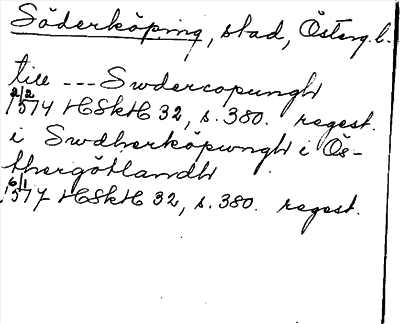 Söderköping, stad, Österg.l.
till --- Swdercopungh
2/2 1514 HSkH 32, s. 380. regest.
i Swdherköpwngh i Ös-
thergötlandh
6/1 1517 HSkH 32, s. 380. regest.